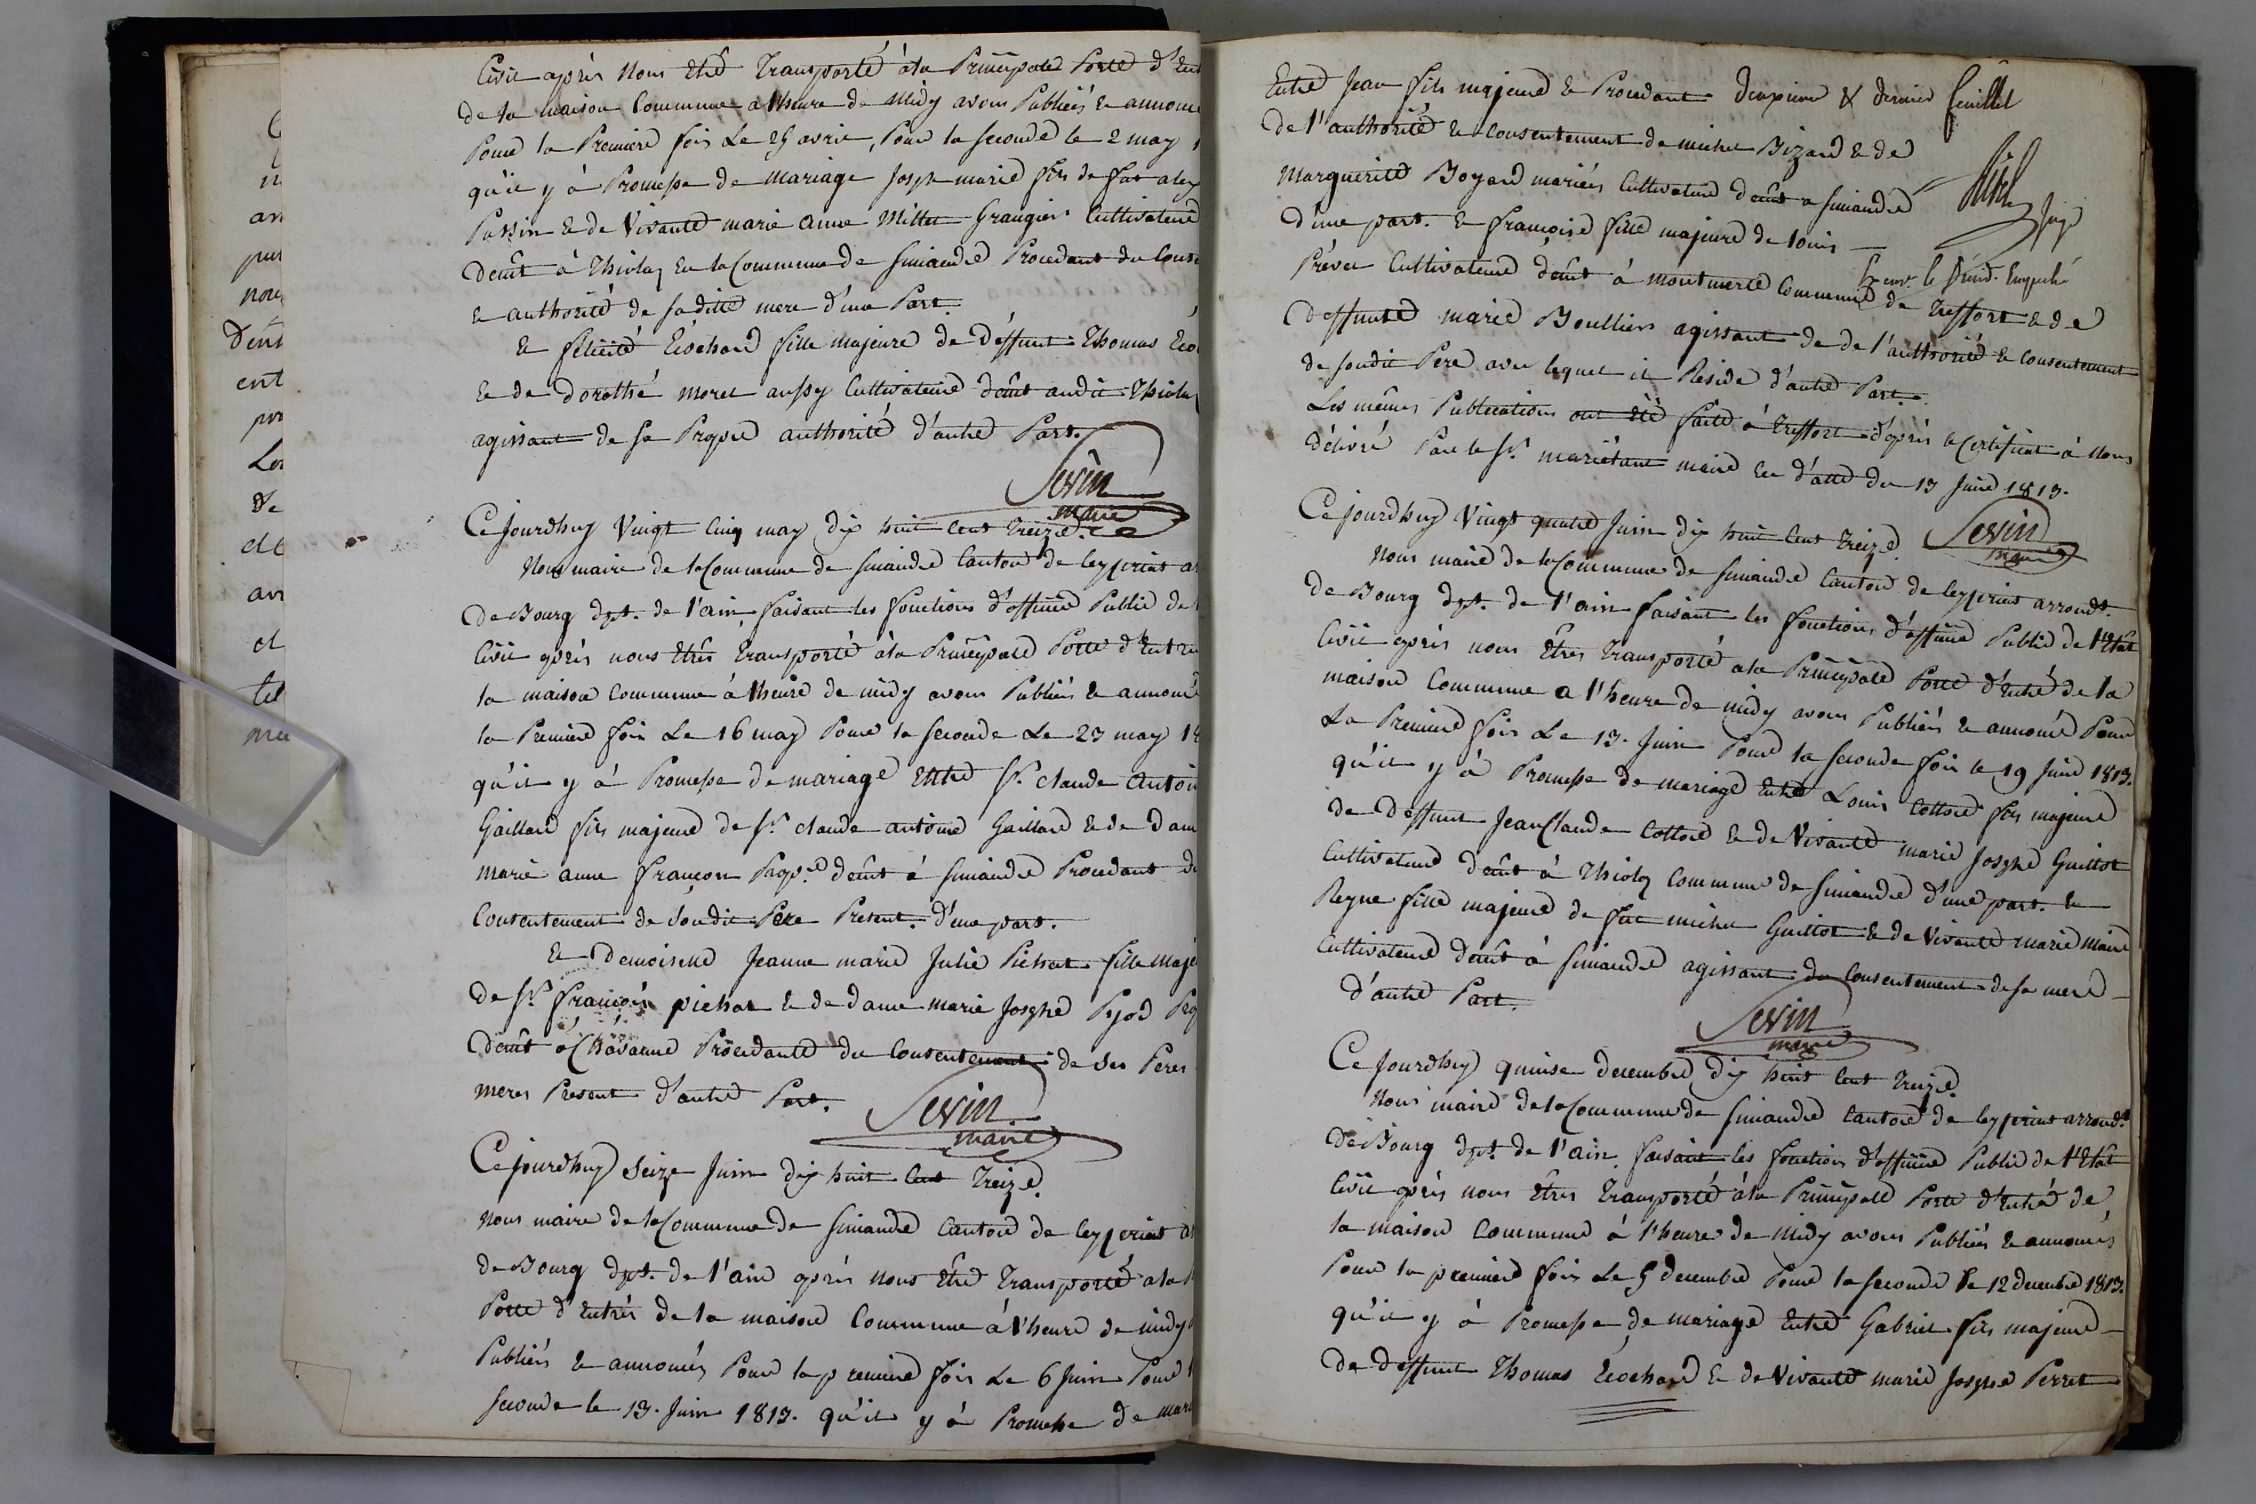 Civil après nous Etre Transporté à la Principale Porte d'Ent
de la maison Commune a l'heure de Midy avons Publiés & annonc
Pour la Premiere fois Le 25 avril, Pour la seconde le 2 may
qu'il y à Promesse de Mariage Josph marie fils de feu alex
Passin & de Vivante marie anne Millet Grangier Cultivateur
demt à Thiolay en la Commune de Simandre Procedant du Cons
& authorité de sa ditte mere d'une Part.
& félicité Ecochard fille majeure de déffunt Thomas Eco
& de dorothé moret aussy Cultivateur demt audit Thiolay
agissant de sa Propre authorité d'autre Part.
Sevin
maire
Ce jourdhuy Vingt Cinq may dix huit Cent Treize.
Nous maire de la Commune de Simandre Canton de Ceyzeriat ar
de Bourg dpt. de l'ain, faisant les fonctions d'officier Public de
Civil après nous Etres Transporté à la Principale Porte d'Entré
la maison Commune à l'heure de midy avons Publiés & annoncé
la Premiere fois Le 16 may Pour la seconde Le 23 may 18
qu'il y à Promesse de mariage Entre Sr. claude Antoi
Gaillard fils majeur de Sr. claude antoine Gaillard & de dam
marie anne françon Prop.re demt à Simandre Procedant d
Consentement de Sondit Pere Présent. d'une part.
& Demoiselle Jeanne marie Julie Pichat fille maje
de Sr. François pichat & de dame marie Josphe Pijod Pro
demt à Chavanne Procedante du Consentement de ses Peres
meres Présent d'autre Part.
Sevin
maire
Ce jourdhuy Seize Juin dix huit Cent Treize.
Nous maire de la Commune de Simandre Canton de Ceyzeriat a
de Bourg dpt. de l'ain après nous Etre Transporté a la
Porte d'Entrés de la maison Commune à l'heure de midy
Publiés & annoncés Pour la premiere fois Le 6 Juin Pour
seconde le 13. Juin 1813. qu'il y à Promesse de mari
Entre Jean fils majeur & Procedant
Deuxieme & dernier feuillet
de l'authorité & consentement de michel Bizard & de
Marguerite Boyard mariés Cultivateur demt a Simandre
juge
d'une part. & françoise fille majeure de louis
pour le Présid. Empeché
Prévet Cultivateur demt à montmerle Commune de Treffort & de
deffunte marie Boullier agissant de de l'authorité & consentement
de sondit Pere avec lequel il Reside d'autre Part.
Les mêmes Publications ont Eté faite à Treffort d'après le Certificat à nous
délivré Par le Sr. mariétant maire en d'atte du 13 Juin 1813.
Sevin
maire
Ce jourdhuy Vingt quatre Juin dix huit Cent Treize
Nous maire de la Commune de Simandre Canton de Ceyzeriat arrondt.
de Bourg dpt. de l'ain faisant les fonctions d'officier Public de l'Etat
Civil après nous Etres Transporté a la Principale Porte d'Entré de la
maison Commune a l'heure de midy avons Publiés & annoncé Pour
La Premiere fois Le 13. Juin Pour la seconde fois le 19 Juin 1813.
qu'il y à Promesse de mariage Entre Louis Cottard fils majeur
de deffunt Jean Claude Cottard & de Vivante marie Josphe Guillot
Cultivateur demt à Thiolay Commune de Simandre d'une part. &
Reyne fille majeure de feu michel Guillot & de Vivante marie Maire
Cultivateur demt à Simandre agissant du Consentement de sa mere
d'autre Part.
Sevin
maire
Ce jourdhuy quinse decembre dix huit Cent Treize
Nous maire de la Commune de Simandre Canton de Ceyzeriat arrondt.
de Bourg dpt. de l'ain, faisant les fonctions d'officier Public de l'Etat
Civil après nous Etres Transporté à la Principale Porte d'Entré de
la maison Commune à l'heure de midy avons Publiés & annoncés
Pour la premiere fois Le 5 decembre Pour la seconde le 12 decembre 1813.
qu'il y à Promesse de mariage Entre Gabriel fils majeur
de deffunt Thomas Ecochard & de Vivante marie Josphe Perret